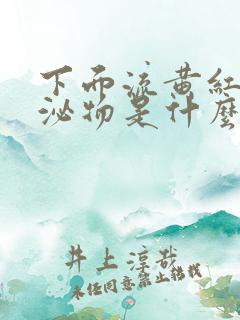 下面流黄红
泌物是什麼
井上淳哉
未经同意禁止转载